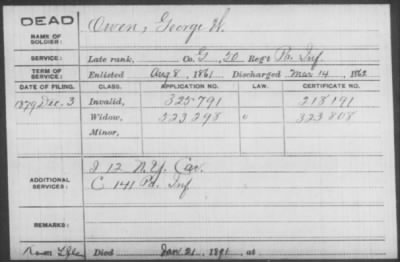 DEAD
NAME OF SOLDIER: Owen, George W.
SERVICE: Late rank, Co. G, 50 Reg't Pa. Inf.
TERM OF SERVICE: Enlisted Aug 8, 1861 Discharged Mar 14, 1862
DATE OF FILING. CLASS. APPLICATION NO. LAW. CERTIFICATE NO.
1879 Dec. 3 Invalid, 325791 218191
Widow, 523298 323808
Minor,
ADDITIONAL SERVICES: I 12 N.Y. Cav.
C 141 Pa. Inf
REMARKS:
Died Jan 21, 1891, at